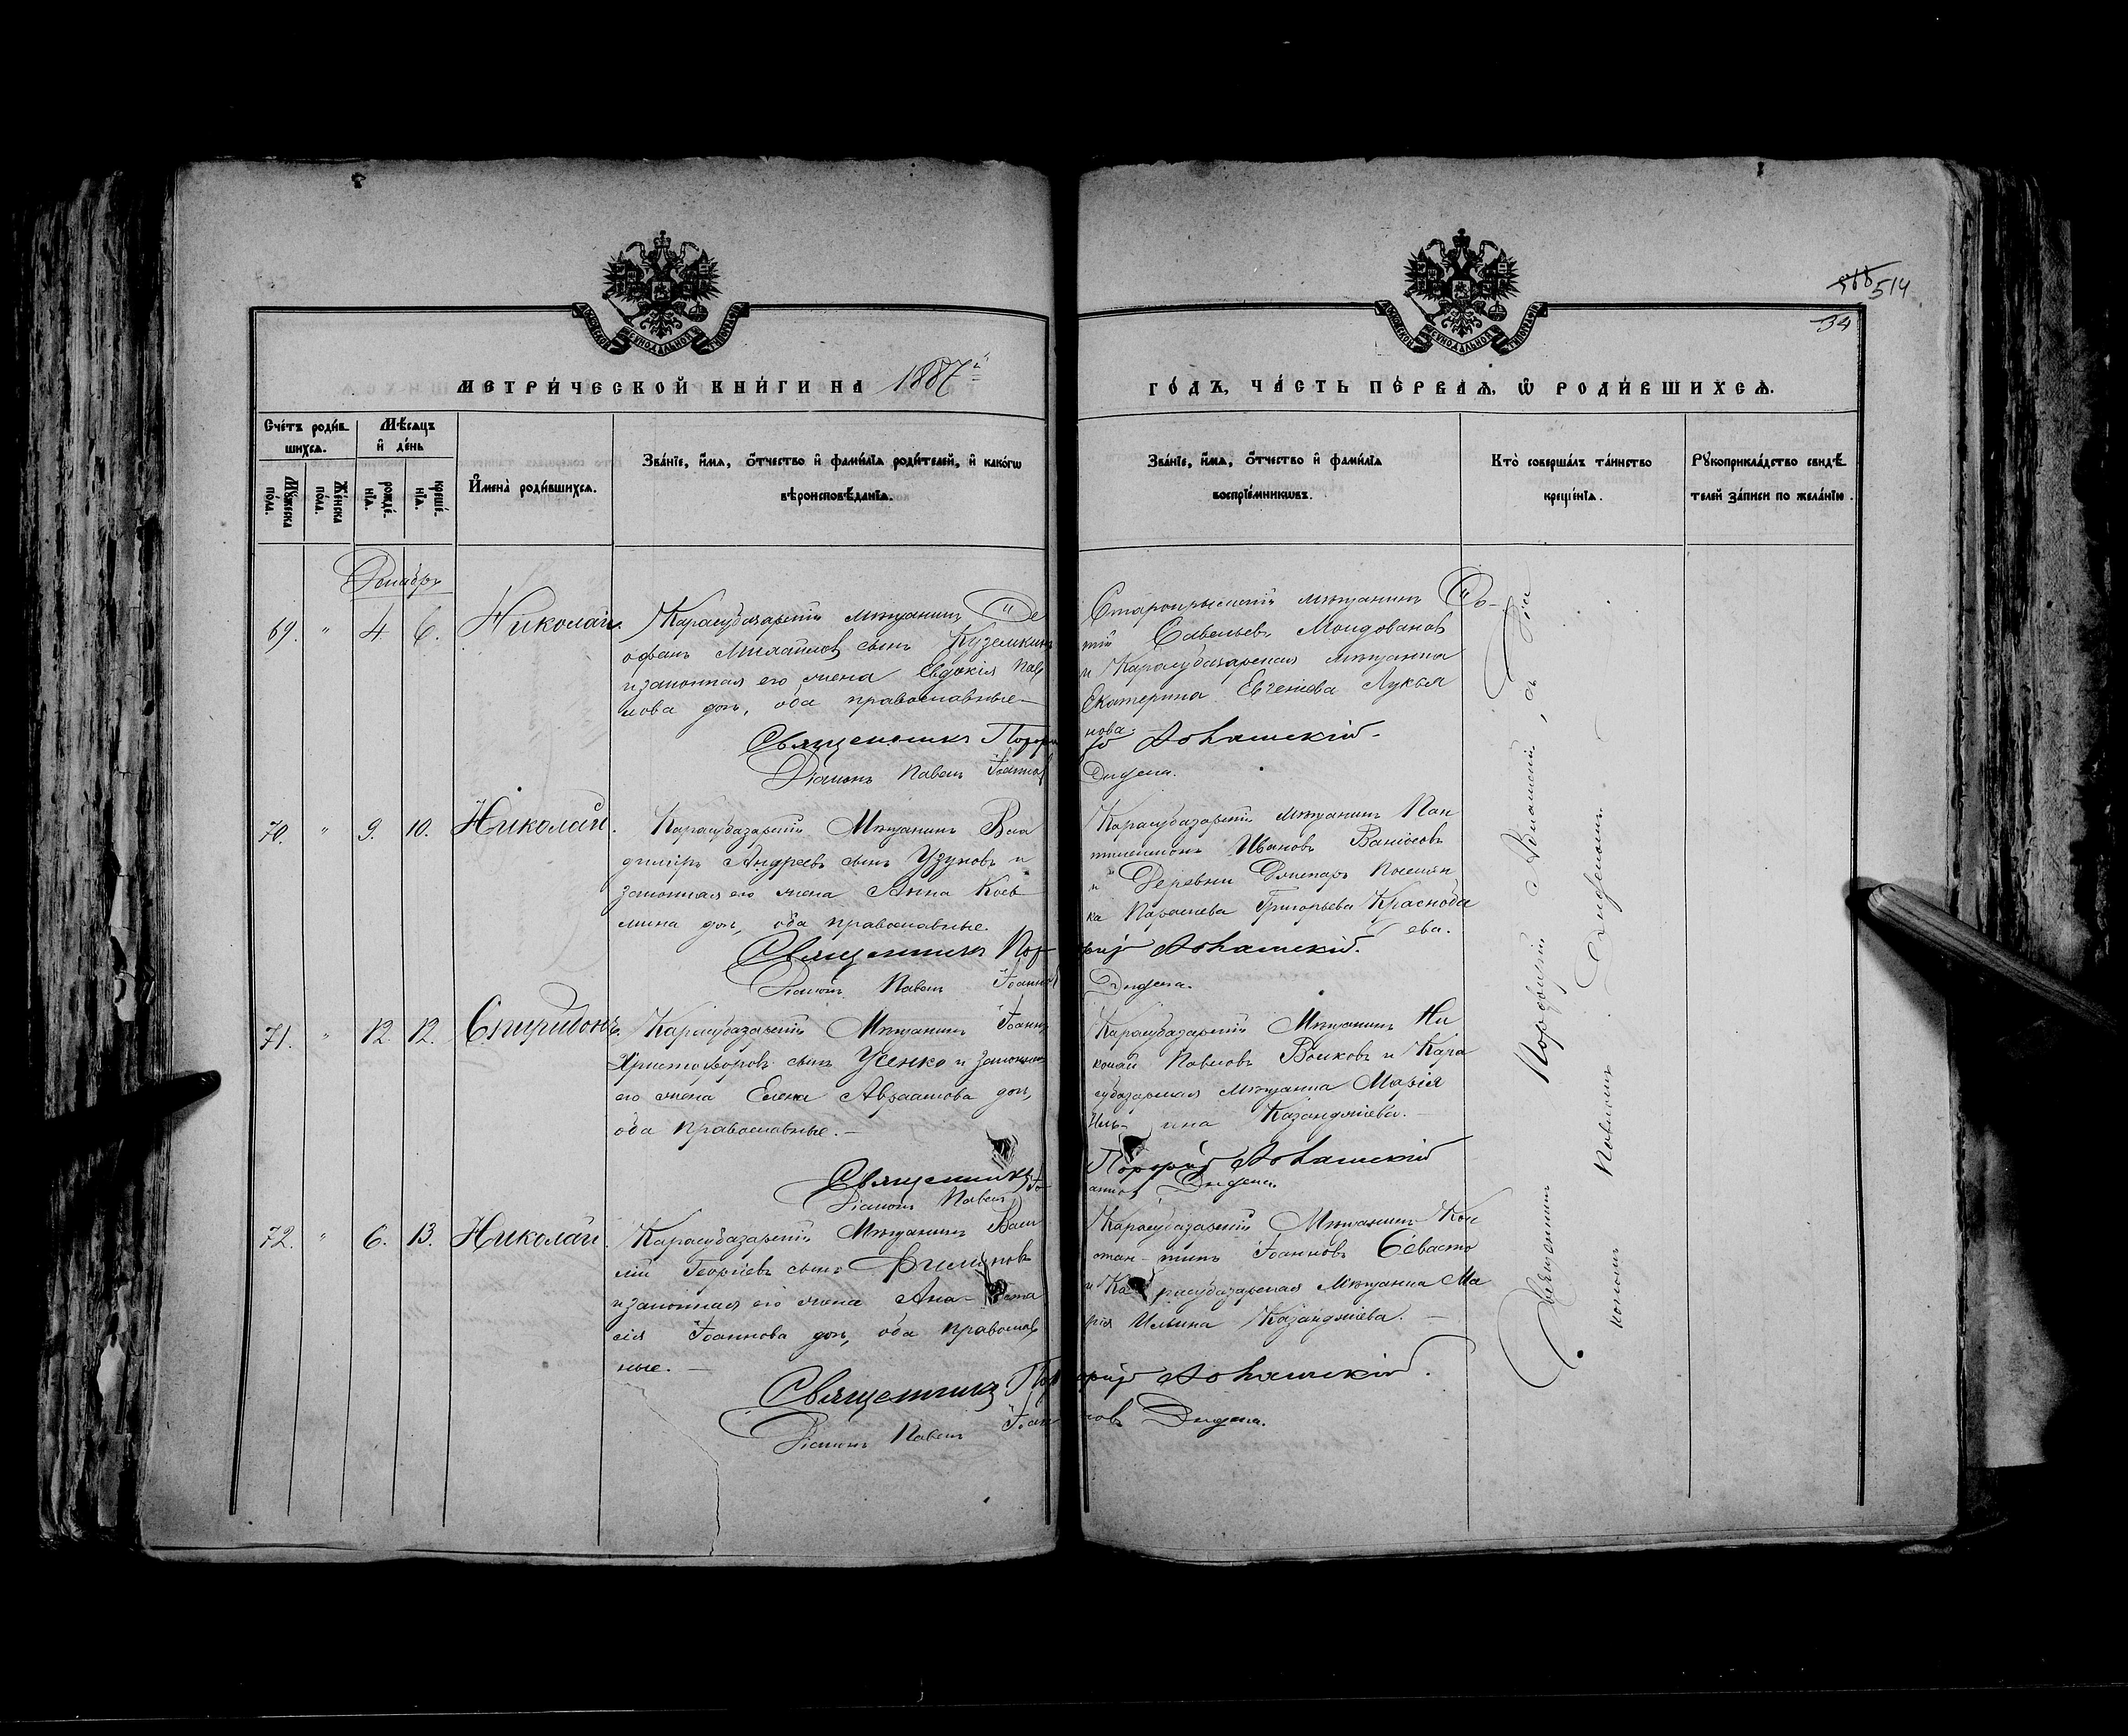 514
34
МЕТРИ́ЧЕСКОЙ КНИ́ГИ НА 1887й
ГО́ДЪ, ЧА́СТЬ ПЕ́РВАѦ, Ѡ РОДИ́ВШИХСѦ.
Сче́тъ роди́в-
шихсѧ.
Мѣ́сѧцъ
и҆ де́нь
Мꙋ́жеска
по́ла.
Же́нска
по́ла.
рожде́-
нїѧ.
креще́-
нїѧ.
И҆мена̀ роди́вшихсѧ.
Зва́нїе, и҆́мѧ, ѻ҆́тчество и҆ фами́лїѧ роди́телей, и҆ како́гѡ
вѣроисповѣ́данїѧ.
Зва́нїе, и҆́мѧ, ѻ҆́тчество и҆ фами́лїѧ
воспрїе́мникѡвъ.
Кто̀ соверша́лъ та́инство
креще́нїѧ.
Рꙋкоприкла́дство свидѣ́-
телей за́писи по жела́нїю.
Декабрь
69. " 4 6. Николай.
Карасубазарскій мѣщанинъ Ѳе
офанъ Михайловъ сынъ Куземкинъ
и законная его жена Евдокія Пав
лова дочь, оба православные —
Священникъ Порфи
Діаконъ Павелъ Іоаннов
Старокрымскій мѣщанинъ Ѳо-
тій Савельевъ Молдовановъ
и Карасубазарская мѣщанка
Екатерина Евгеніева Лукья
нова.
Дидена.
70. " 9. 10. Николай.
Карасубазарскій Мѣщанинъ Вла
диміръ Андреевъ сынъ Узуновъ и
законная его жена Анна Козь
мина дочь, оба православные.
Священникъ Пор-
Діаконъ Павелъ Іоаннов
Карасубазарскій мѣщанинъ Пан
телеимонъ Ивановъ
и Деревни Поселян
ка Параскева Григорьева Красноба
ева.
Дидена.
71. " 12 12. Спиридонъ.
Карасубазарскій Мѣщанинъ Іоаннъ
Христофоровъ сынъ Усенко и законная
его жена Елена Авраамова дочь,
оба православные. —
Священникъ
Діаконъ Павелъ Іо-
Карасубазарскій Мѣщанинъ Ни
колай Павловъ Волковъ и Кара
субазарская мѣщанка Марія
Иль-ина Казанджіева. —
Порфирій
аннов Дидена.
72. " 6. 13. Николай.
Карасубазарскій Мѣщанинъ Васи
лій Георгіевъ сынъ Филиповъ
и законная его жена Ана-ста
сія Іоаннова дочь, оба православ
ные. —
Священникъ Порф
Діаконъ Павелъ Іоан
Карасубазарскій Мѣщанинъ Кон
стан-тинъ Іоанновъ Севасто
и Ка расубазарская Мѣщанка Ма
рія Ильина Казанджіева. —
новъ Дидена.
Священникъ Порфирій
Павломъ Диденомъ.